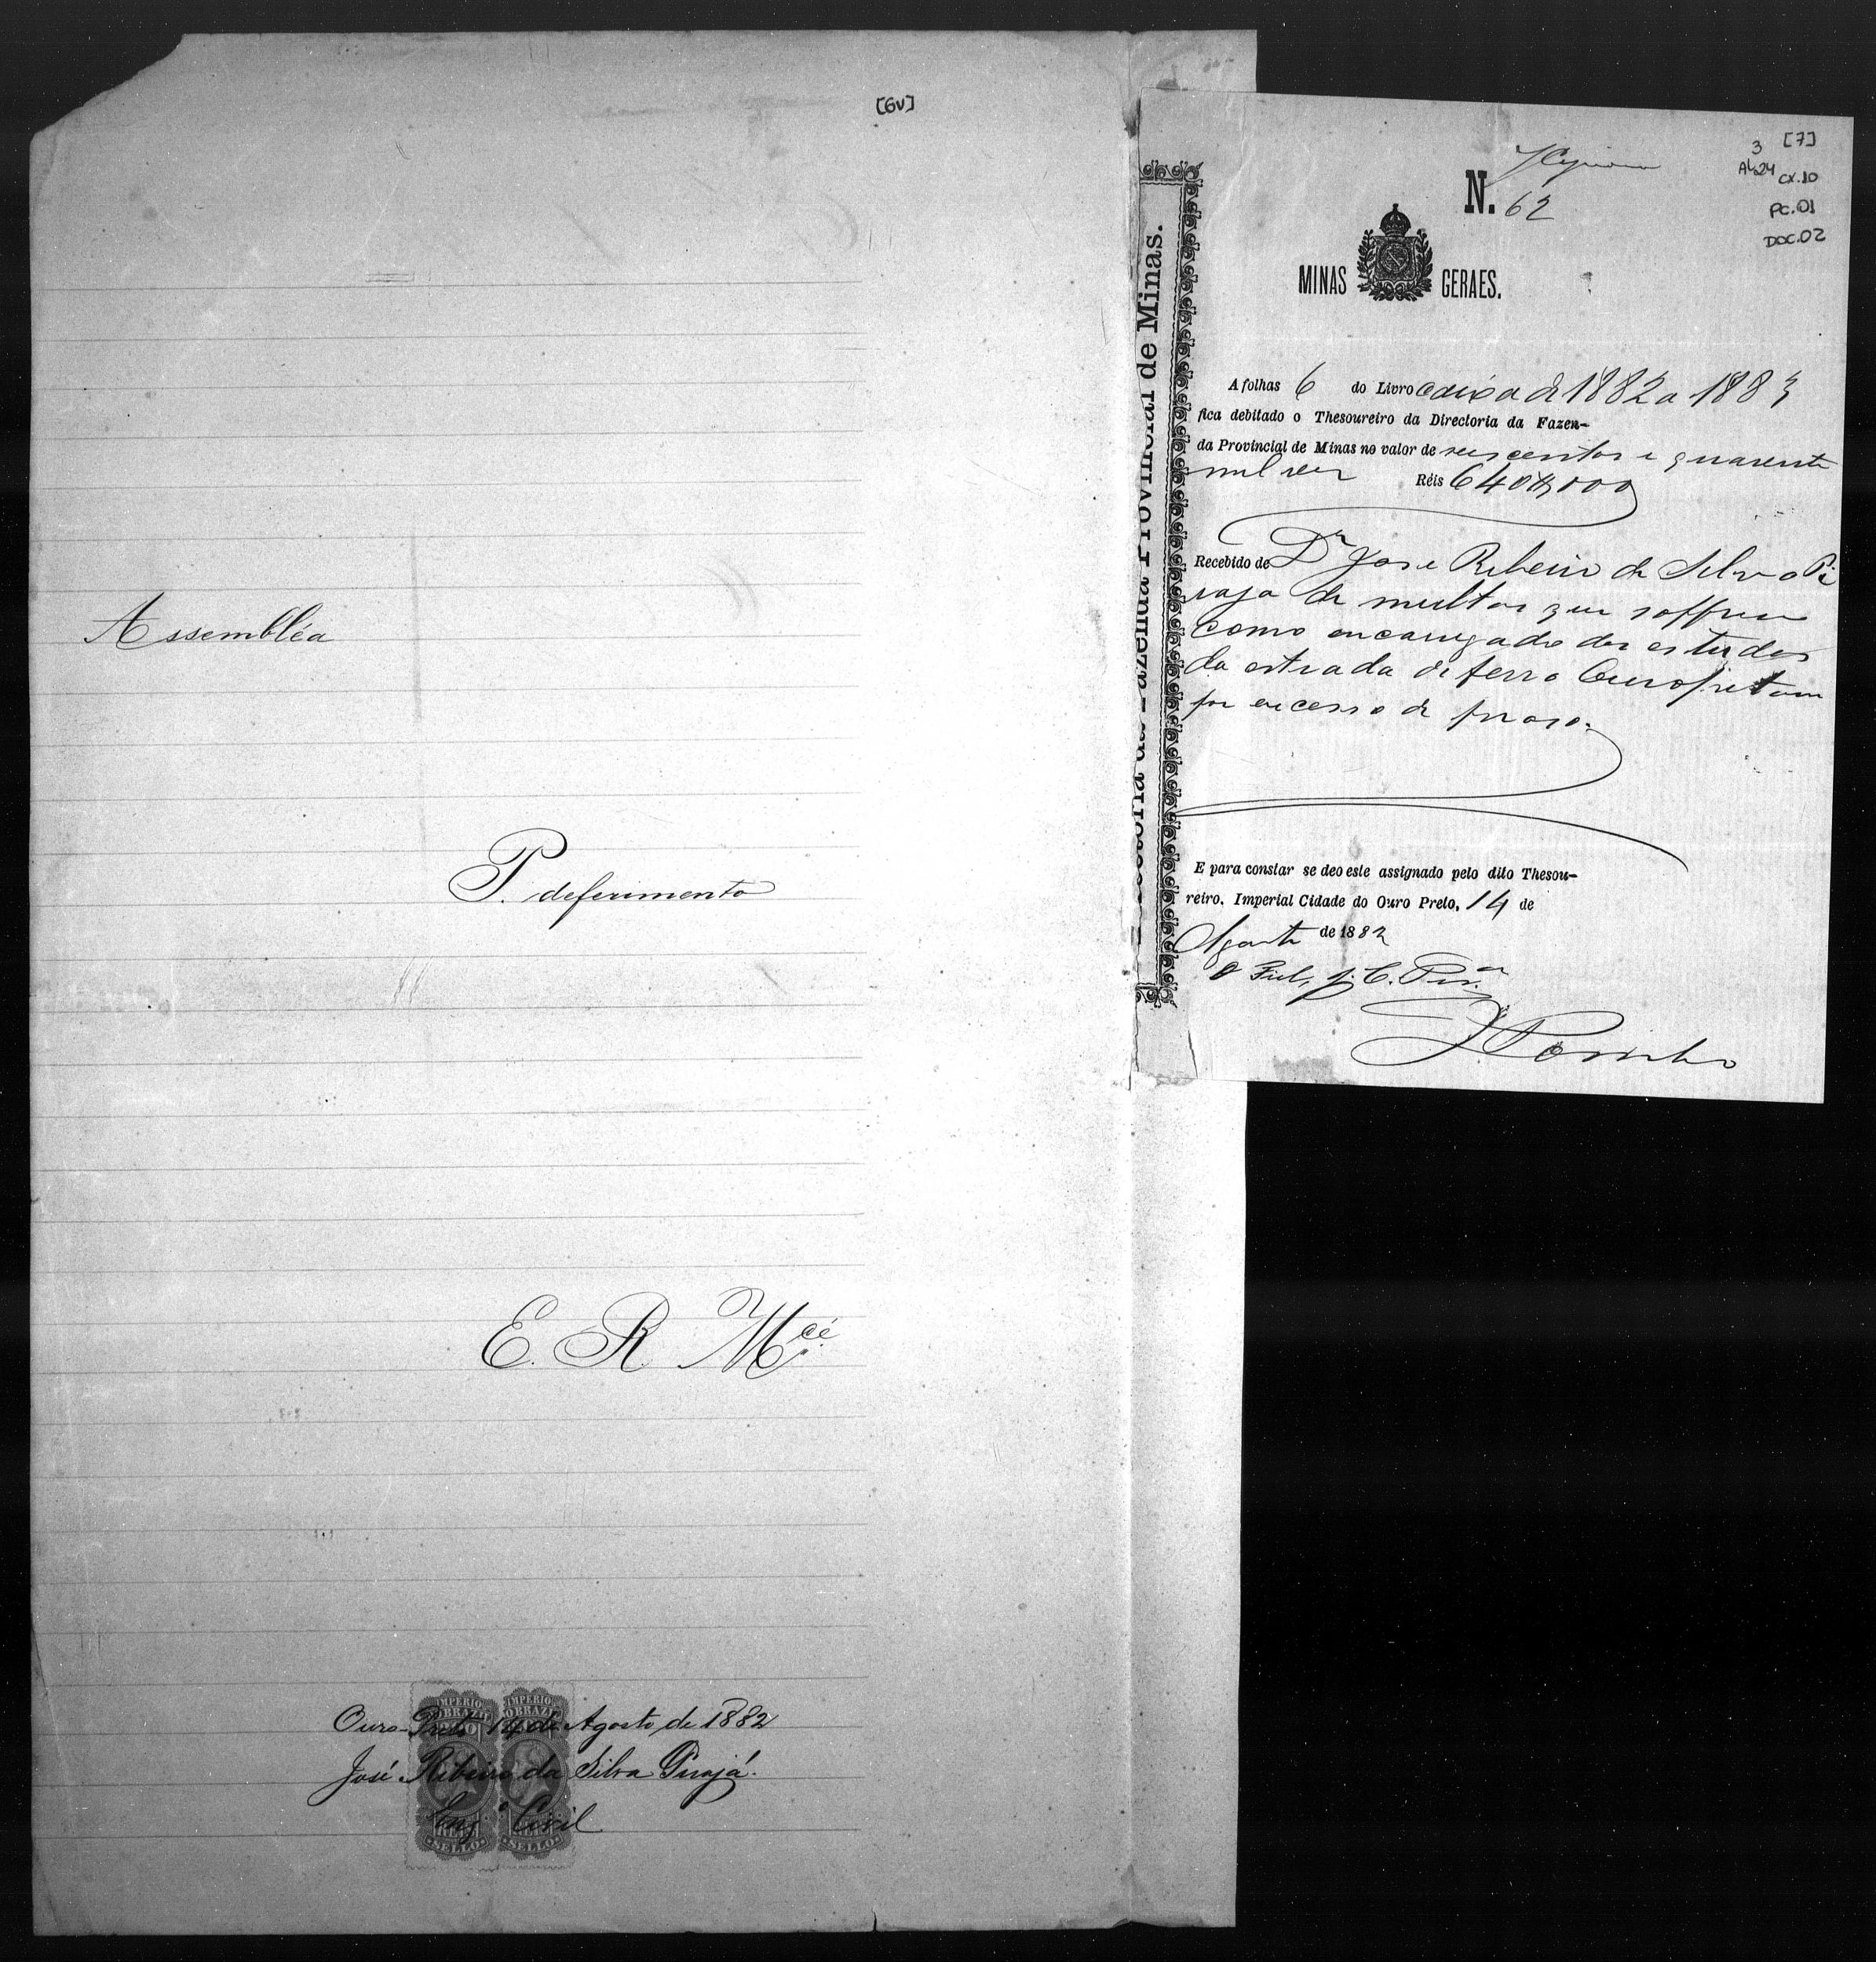 [6v]
Assembléa
P. deferimento
E. R. M.cê
Ouro-Preto 14 de Agosto de 1882
José Ribeiro da Silva Pirajá.
Eng.º Civil
IMPERIO DO BRAZIL
IMPERIO DO BRAZIL
200
REIS
REIS
SELLO
SELLO
[7]
3
AL24 CX.10
PC.01
DOC.02
N. 62
MINAS GERAES.
Directoria da Fazenda Provincial de Minas.
A folhas 6 do Livro caixa de 1882 a 1883
fica debitado o Thesoureiro da Directoria da Fazen-
da Provincial de Minas no valor de seiscentos e quarenta
mil reis Réis 640$000
Recebido de Dr José Ribeiro da Silva Pi
raja de multas que soffreu
como encarregado dos estudos
da estrada de ferro Ouropretana
por excesso de praso.
E para constar se deo este assignado pelo dito Thesou-
reiro. Imperial Cidade do Ouro Preto, 14 de
Agosto de 1882
O Fiel, J. C. Per.ª